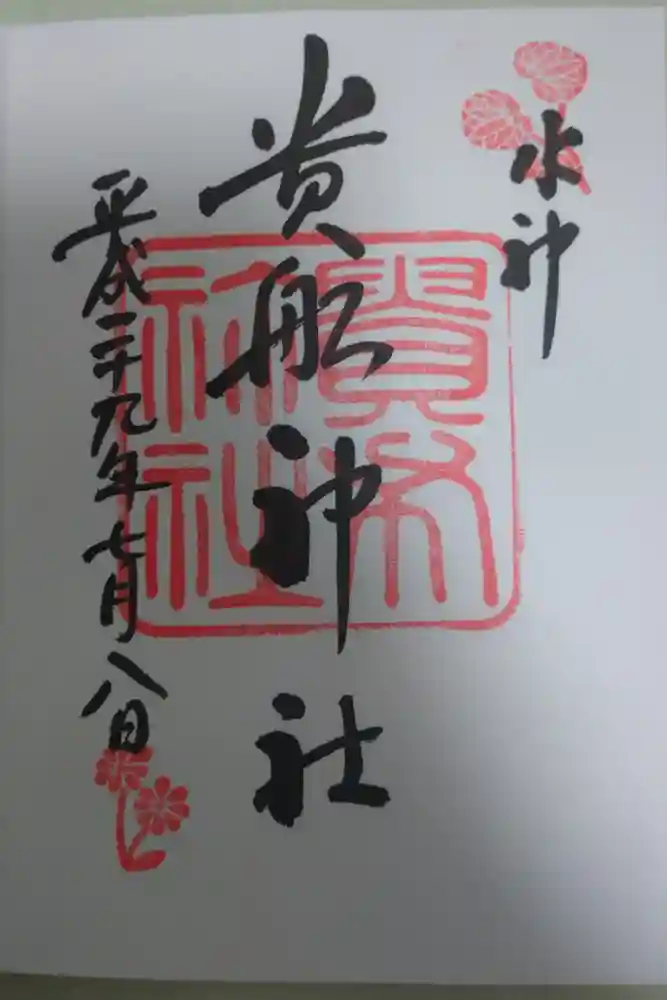 水神
貴船神社
平成二十九年七月八日